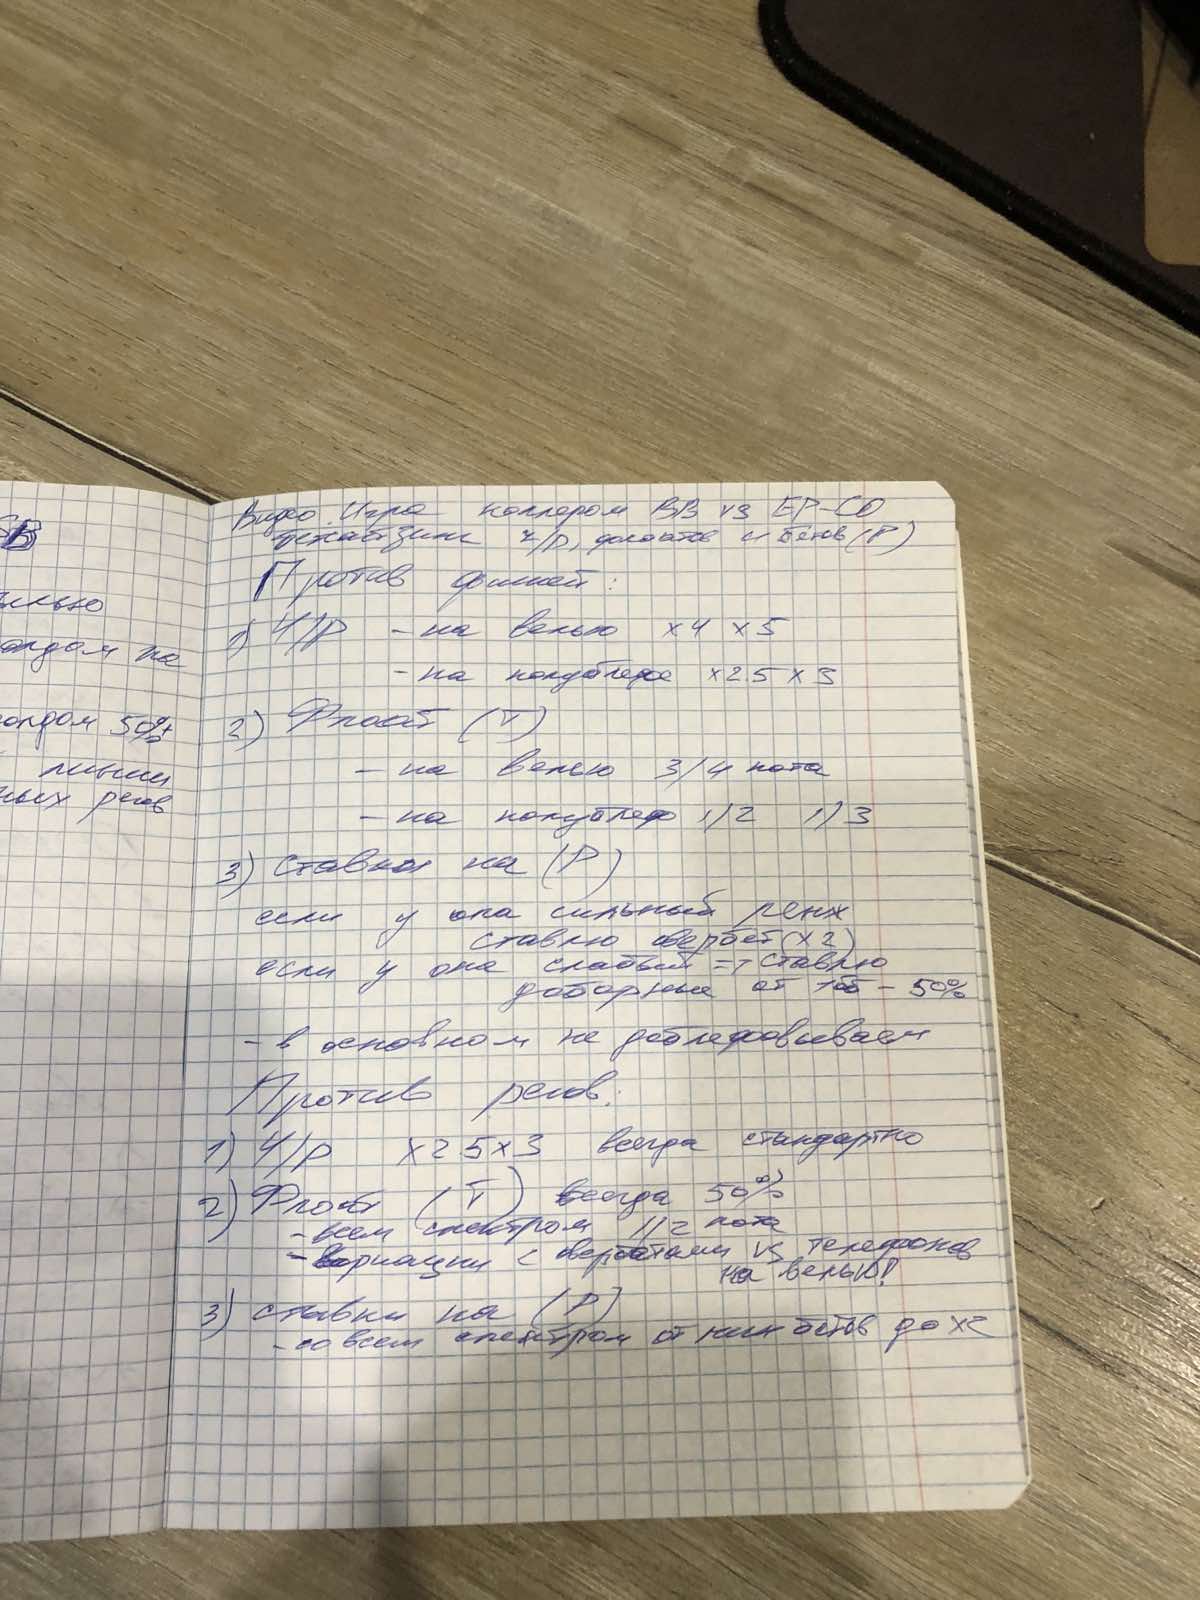 SB
олдом на
олдом 50%
регов
Видео Игра коллером BB vs EP-CO
сайзинг ч/р, флоатов и бетов (Р)
Против фишей:
1) Ч/Р - на велью x4 x5
- на полублефе x2.5 x3
2) Флоат (T)
- на велью 3/4 пота
- на полублеф 1/2 1/3
3) Ставки на (Р)
если у опа сильный ренж
ставлю овербет (x2)
если у опа слабый => ставлю
доборные от 1бб - 50%
- в основном не доблефовываем
Против регов:
1) Ч/Р x2 5 x3 всегда стандартно
2) Флоат (T) всегда 50%
- всем спектром 1/2 пота
- вариации с овербетами vs телефонов
на велью!
3) ставки на (Р)
- со всем спектром от минбетов до x2